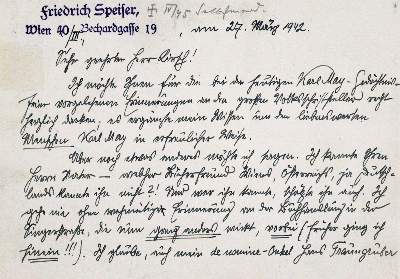 Friedrich Speiser, ✝ IV/45 Selbstmord.
Wien 40/III, Bechardgasse 19, am 27. März 1942.
Sehr geehrter Herr Korth!
Ich möchte Ihnen für die bei der heutigen Karl-May-Gedächtnis-
feier vorgelesenen Erinnerungen an den großen Volksschriftsteller recht
herzlich danken; es ergänzte mein Wissen um den liebenswerten
Menschen Karl May in erfreulicher Weise.
Aber noch etwas anderes möchte ich sagen. Ich kannte Ihren
Herrn Vater – welcher Bücherfreund Wiens, Österreichs, ja Deutsch-
lands kannte ihn nicht?! Und wer ihn kannte, schätzte ihn auch. Ich
gehe nie ohne wehmütiger Erinnerung an der Buchhandlung in der
Singerstraße, die nun ganz anders wirkt, vorbei (früher ging ich
hinein!!!). Ich glaube, auch mein de nomine-Onkel Hans Fraungruber